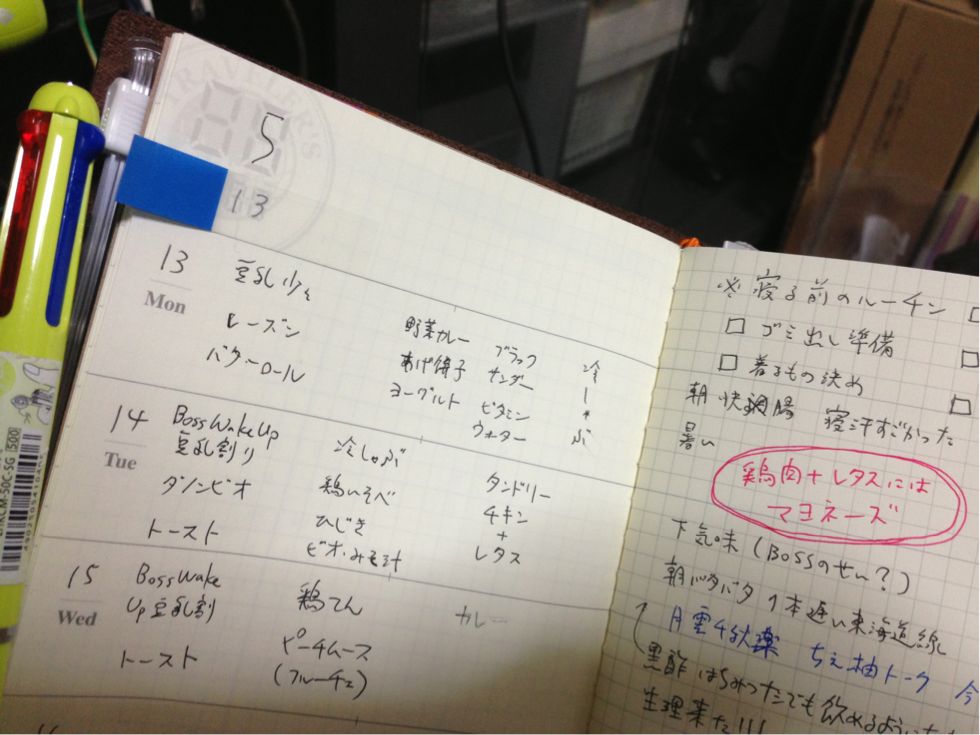 TRAVELER'S
5
13
13
Mon
豆乳少々
レーズン
バターロール
野菜カレー
あげ餃子
ヨーグルト
ブラック
サンダー
ビタミン
ウォーター
冷
し
ゃ
ぶ
14
Tue
BossWakeUp
豆乳割り
ダノンビオ
トースト
冷しゃぶ
鶏いそべ
ひじき
ビオ・みそ汁
タンドリー
チキン
+
レタス
15
Wed
BossWake
Up豆乳割
トースト
鶏てん
ピーチムース
(フルーチェ)
カレー
※寝る前のルーチン
□ ゴミ出し準備
□ 着るもの決め
朝 快調腸 寝汗すごかった
暑い
鶏肉+レタスには
マヨネーズ
下気味(Bossのせい?)
朝バタバタ 1本遅い東海道線
ちえ抽トーク 今
黒酢はちみつ
生理来た!!!
EKCM-50C-SG
500